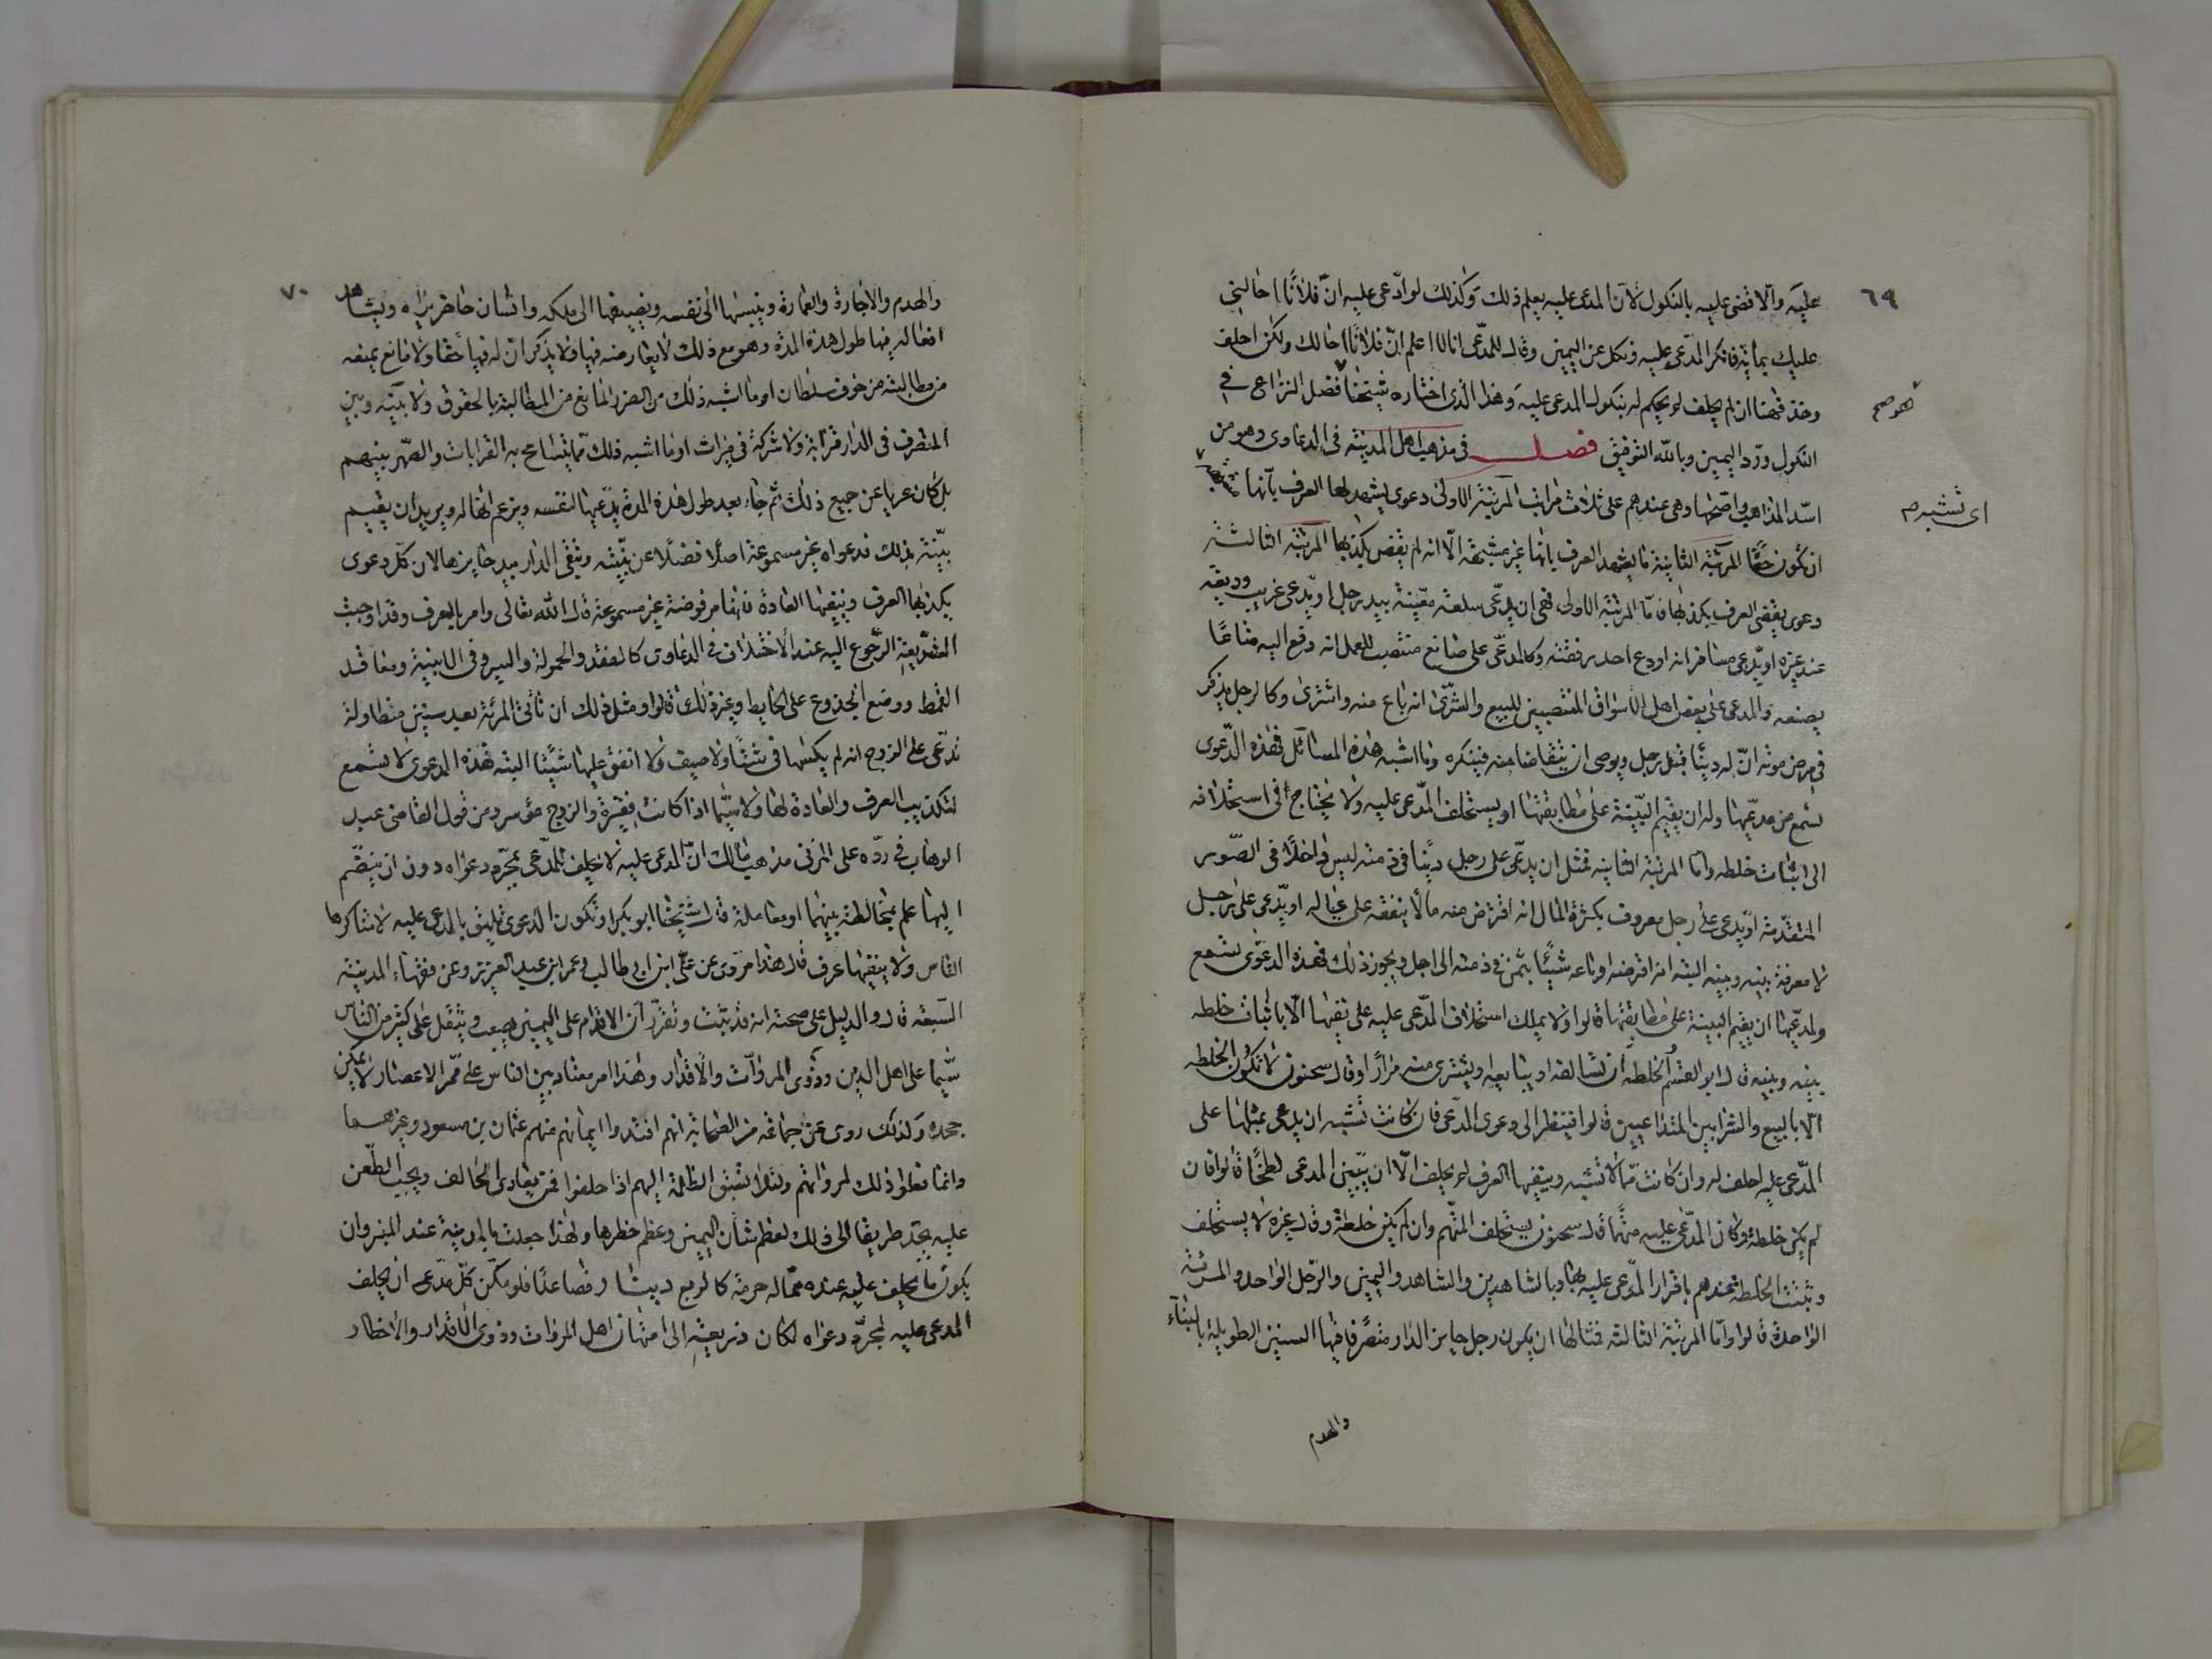 ٦٩
عليه والا قضى عليه بالنكول لان المدعى عليه يعلم ذلك وكذلك لو ادعى عليه ان فلانا احالني
عليك بمائة فانكر المدعى عليه ونكل عن اليمين وقال للمدعي انا لا اعلم ان فلانا احالك ولكن احلف
وخذ فههنا ان لم يحلف لم يحكم له بنكول المدعى عليه وهذا الذي اختاره شيخنا فصل النزاع في
هو صح
النكول ورد اليمين وبالله التوفيق فصل في مذهب اهل المدينة في الدعاوى وهو من
اسد المذاهب واصحها وهي عندهم على ثلاث مراتب المرتبة الاولى دعوى يشهد لها العرف بانها
اى تشبه م
ان تكون حقا المرتبة الثانية ما يشهد العرف بانها غير مشبهة الا انه لم يقض بكذبها المرتبة الثالثة
دعوى يقضي العرف بكذبها فاما المرتبة الاولى فهي ان يدعي سلعة معينة بيد رجل او يدعي غريب وديعة
عند غيره او يدعي مسافر انه اودع احد رفقته وكالمدعي على صانع منتصب للعمل انه دفع اليه متاعا
يصنعه والمدعي على بعض اهل الاسواق المنتصبين للبيع والشرى انه باع منه واشترى وكالرجل يذكر
في مرض موته ان له دينا قبل رجل ويوصى ان يتقاضا منه فينكره وما اشبه هذه المسائل فهذه الدعوى
تسمع من مدعيها وله ان يقيم البينة على مطابقتها او يستحلف المدعى عليه ولا يحتاج في استحلافه
الى اثبات خلطه واما المرتبة الثانية فمثل ان يدعي على رجل دينا في ذمته ليس داخلا في الصور
المتقدمة او يدعي على رجل معروف بكثرة المال انه اقترض منه مالا ينفقه على عياله او يدعي على رجل
لا معرفة بينه وبينه البتة انه اقرضه او باعه شيئا بثمن في ذمته الى اجل ويجوز ذلك فهذه الدعوى تسمع
ولمدعيها ان يقيم البينة على مطابقتها قالوا ولا يملك استحلاف المدعى عليه على نفيها الا باثبات خلطه
بينه وبينه قال ابن القسم والخلطه ان يسالفه او يبايعه او يشترى منه مرارا وقال سحنون لا تكون الخلطه
الا بالبيع والشرا بين المتداعيين قالوا فينظر الى دعوى المدعي فان كانت تشبه ان يدعى بمثلها على
المدعى عليه احلف له وان كانت مما لا تشبه وينفيها العرف لم يحلف الا ان يبين المدعي لطخا قالوا فان
لم يكن خلطة وكان المدعى عليه متهما قال سحنون يستحلف المتهم وان لم يكن خلطة وقال غيره لا يستحلف
وتثبت الخلطه عندهم باقرار المدعى عليه بها وبالشاهدين والشاهد واليمين والرجل الواحد والمرئة
الواحدة قالوا واما المرتبة الثالثه فمثالها ان يكون رجل حايز الدار متصرفا فيها السنين الطويلة بالبناء
والهدم
٧٠
والهدم والاجارة والعمارة وينسبها الى نفسه ويضيفها الى ملكه وانسان حاضر يراه ويشاهد
افعاله فيها طول هذه المدة وهو مع ذلك لا يعارضه فيها ولا يذكر ان له فيها حقا ولا مانع يمنعه
من مطالبته من خوف سلطان او ما اشبه ذلك من الضرر المانع من المطالبة بالحقوق ولا بينه وبين
المتصرف في الدار قرابة ولا شركة في ميراث او ما اشبه ذلك مما يتسامح به القرابات والصهر بينهم
بل كان عريا عن جميع ذلك ثم جاء بعد طول هذه المدة يدعيها لنفسه ويزعم انها له ويريد ان يقيم
بينة بذلك فدعواه غير مسموعة اصلا فضلا عن بينته وتبقى الدار بيد حايزها لان كل دعوى
يكذبها العرف وينفيها العادة فانها مرفوضة غير مسموعة قال الله تعالى وامر بالعرف وقد اوجبت
الشريعة الرجوع اليه عند الاختلاف في الدعاوى كالنقد والحمولة والسير وفي الابنية ومعاقد
القمط ووضع الجذوع على الحايط وغير ذلك قالوا ومثل ذلك ان تاتي المرئة بعد سنين متطاولة
تدعي على الزوج انه لم يكسها في شتا ولا صيف ولا انفق عليها شيئا البتة فهذه الدعوى لا تسمع
لتكذيب العرف والعادة لها ولا سيما اذا كانت فقيرة والزوج موسر ومن قول القاضى عبد
الوهاب في رده على المزني مذهب مالك ان المدعى عليه لا يحلف للمدعي بمجرد دعواه دون ان ينضم
اليها علم بمخالطة بينهما او معاملة قال شيخنا ابو بكر او تكون الدعوى تليق بالمدعى عليه لا يتناكرها
الناس ولا ينفيها عرف قال وهذا مروى عن على ابن ابى طالب وعمر ابن عبد العزيز وعن فقهاء المدينة
السبعة قال والدليل على صحته انه قد ثبت وتقرر ان الاقدام على اليمين يصعب ويثقل على كثير من الناس
سيما على اهل الدين وذوى المروآت والاقدار وهذا امر معتاد بين الناس على ممر الاعصار لا يمكن
جحده وكذلك روى عن جماعة من الصحابة انهم افتدوا ايمانهم منهم عثمان بن مسعود وغيرهما
وانما فعلوا ذلك لمرواتهم ولئلا تسبق الظلمة اليهم اذا حلفوا فمن يعادى الحالف ويحب الطعن
عليه يجد طريقا الى ذلك لعظم شأن اليمين وعظم خطرها ولهذا جعلت بالمدينة عند المنبر وان
يكون ما يحلف عليه عنده مما له حرمة كالربع دينار فصاعدا فلو مكن كل مدعى ان يحلف
المدعى عليه لمجرد دعواه لكان ذريعة الى امتهان اهل المروات وذوى الاقدار والاخطار